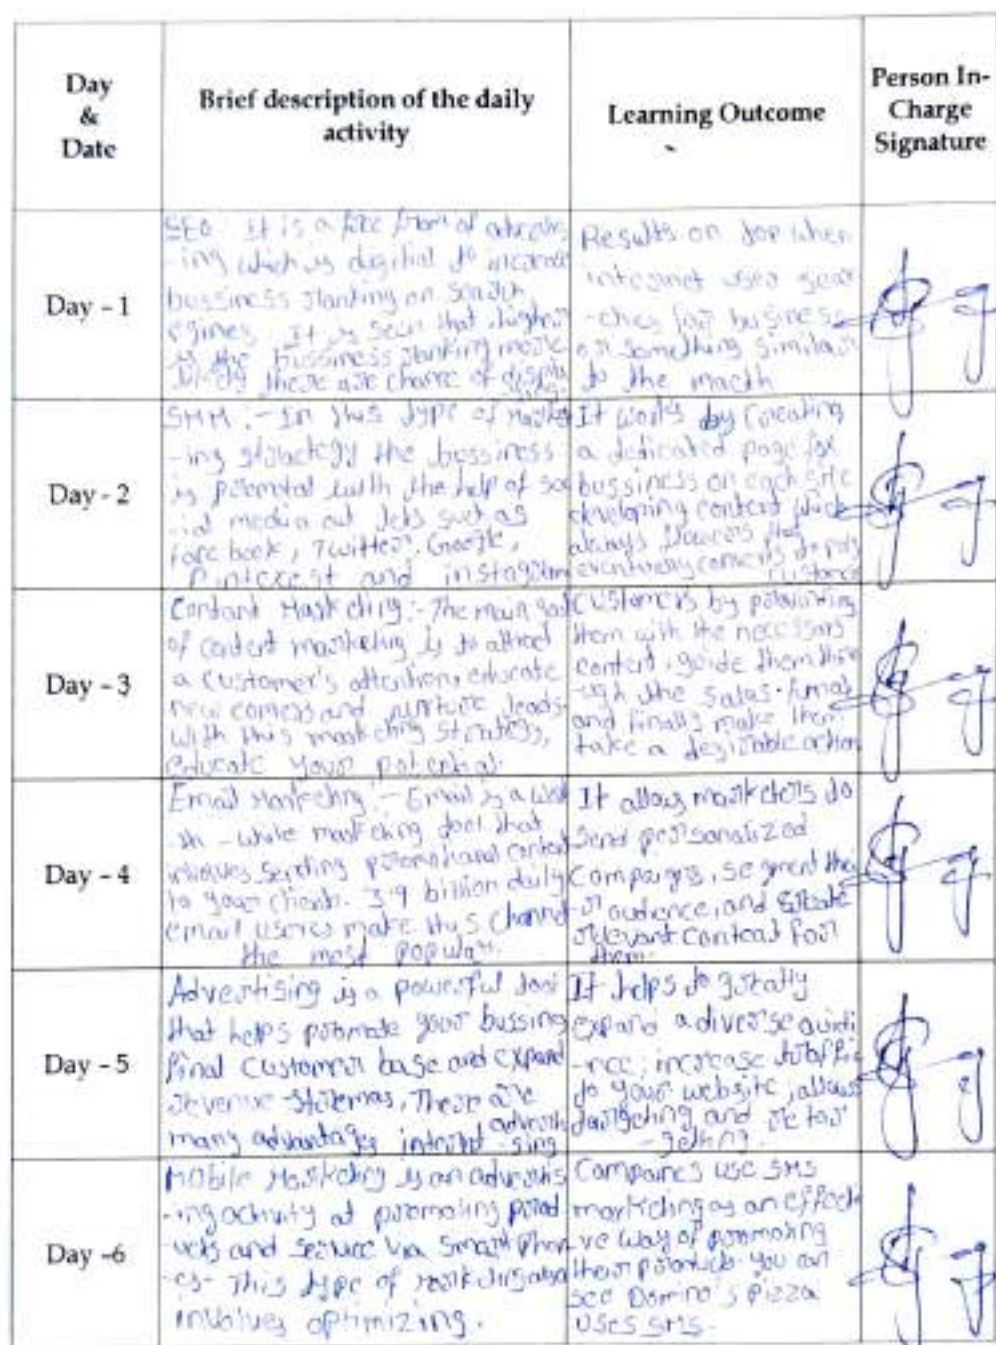 Day
&
Date
Brief description of the daily
activity
Learning Outcome
Person In-
Charge
Signature
Day - 1
SEO : It is a free form of advertis
-ing which is digitial to increase
bussiness ranking on search
egines. It is seen that, higher
is the bussiness ranking more
there are chance of
Results on top when
internet user sear
-ches for business
or something similar
to the macth
Day - 2
SMM :- In this type of
-ing the bussiness
is with the help of soc
-ial media out lets such as
face book, Twitter, Google,
Pinterest and instagram
It works by creating
a dedicated page for
bussiness on each site
developing content which
always
eventually converts
Day - 3
Content Marketing :- The main goal
of content marketing is to attract
a customer's attention, educate
new comers and nurture leads.
With this marketing strategy,
educate your potential.
Customers by
them with the necessary
content, guide them thro
-ugh the sales.
and finally make them
take a desirable action
Day - 4
Email Marketing :- Email is a
- while marketing tool that
involves sending promotional content
to your clients. 3.9 billion daily
email users make this channel
the most popular.
It allows marketers to
send personalized
campaigns, segment the
-ir audience, and create
relevant content for
them.
Day - 5
Advertising is a powerful tool
that helps your
final customer base and expand
revenue There are
many advantages
It helps to greatly
expand a diverse audi
-nce, increase traffic
to your website, allows
targeting and retar
- geting.
Day -6
Mobile Marketing is an advertis
-ing activity at promoting prod
-ucts and service via smart phon
-es- This type of marketing also
involves optimizing.
Compaires use SMS
marketing as an effecti
-ve way of promoting
their products. You can
see Domino's pizza
uses SMS.